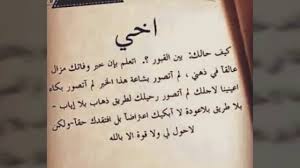 اخي
كيف حالك: بين القبور ؟. اتعلم بإن خبر وفاتك مزال
عالقآ في ذهني ، لم آتصور بشاعة هذا الخبر لم آتصور بكاء
اعيننا لاجلك لم آتصور رحيلك لطريق ذهاب بلا إياب -
بلا طريق بلاعودة لا آبكيك اعتراضآ بل افتقدك حقآ-ولكن
لاحول لي ولا قوة الا بالله